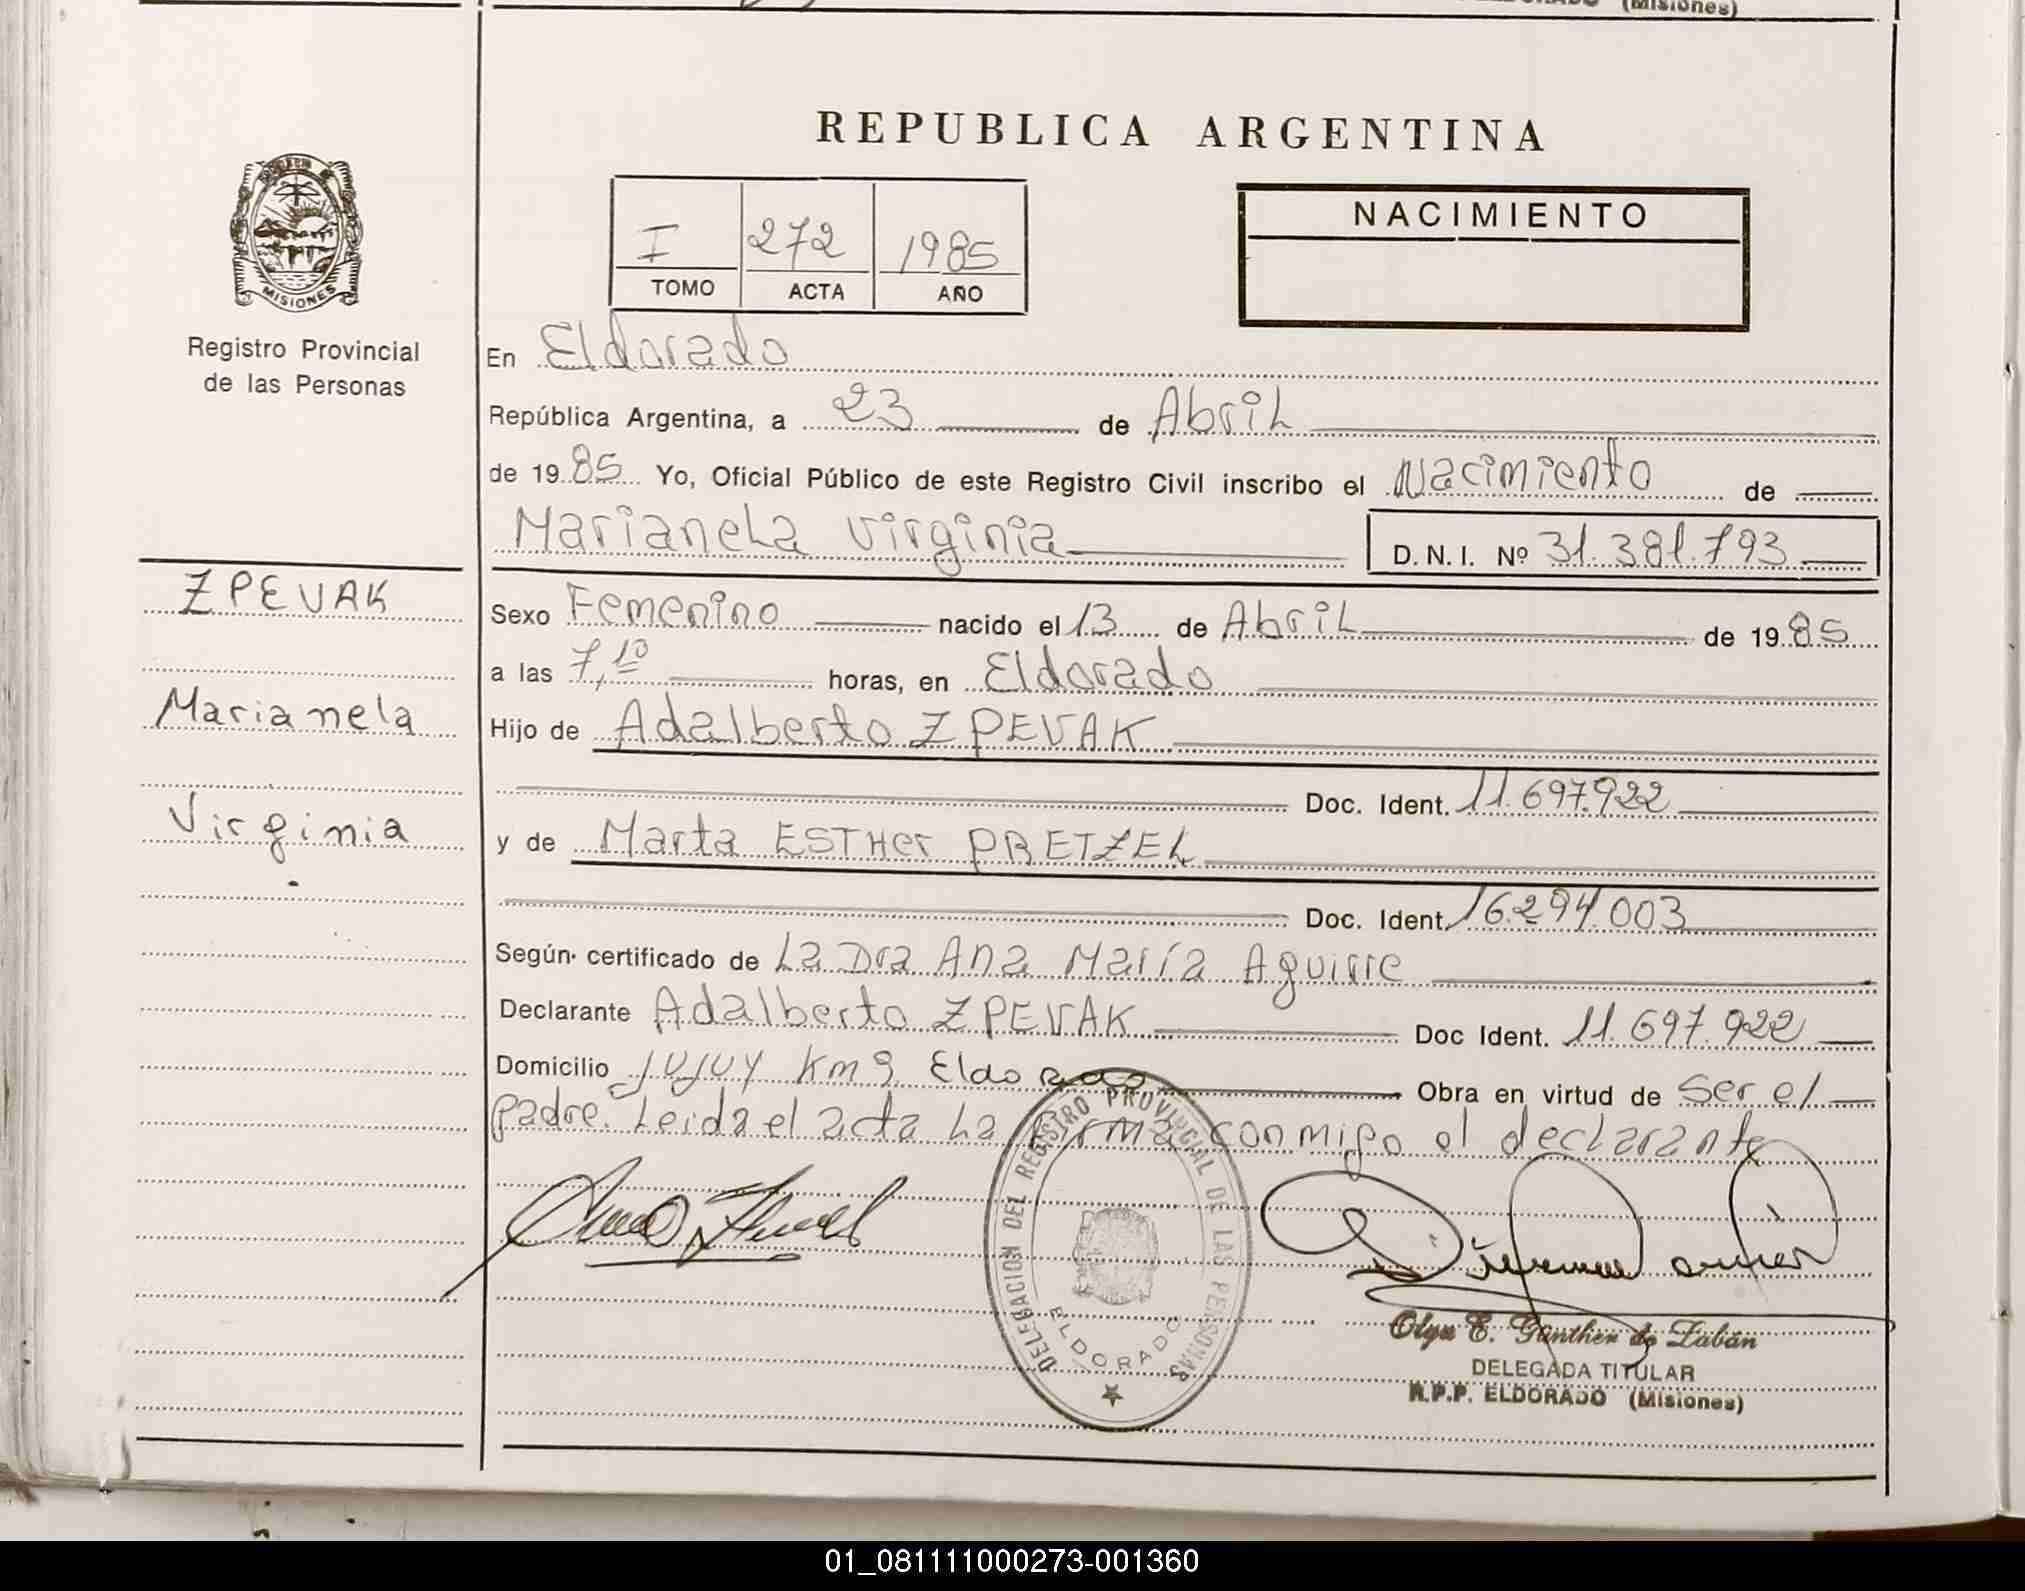 (Misiones)
REPUBLICA ARGENTINA
I 272 1985
TOMO ACTA AÑO
NACIMIENTO
MISIONES
Registro Provincial
de las Personas
ZPEVAK
Marianela
Virginia
En Eldorado
República Argentina, a 23 de Abril
de 19 85 Yo, Oficial Público de este Registro Civil inscribo el Nacimiento de
Marianela Virginia D.N.I. Nº 31.381.793
Sexo Femenino nacido el 13 de Abril de 19 85
a las 7,10 horas, en Eldorado
Hijo de Adalberto ZPEVAK
Doc. Ident. 11.697.922
y de Marta ESTHer PRETZEL
Doc. Ident. 16.294.003
Según certificado de La Dra Ana María Aguirre
Declarante Adalberto ZPEVAK Doc Ident. 11.697.922
Domicilio Jujuy Km 9 Eldorado Obra en virtud de ser el
padre. Leida el acta la firma conmigo el declarante
DELEGACION DEL REGISTRO PROVINCIAL DE LAS PERSONAS
ELDORADO
Olga E. Günther de Zabán
DELEGADA TITULAR
R.P.P. ELDORADO (Misiones)
01_081111000273-001360